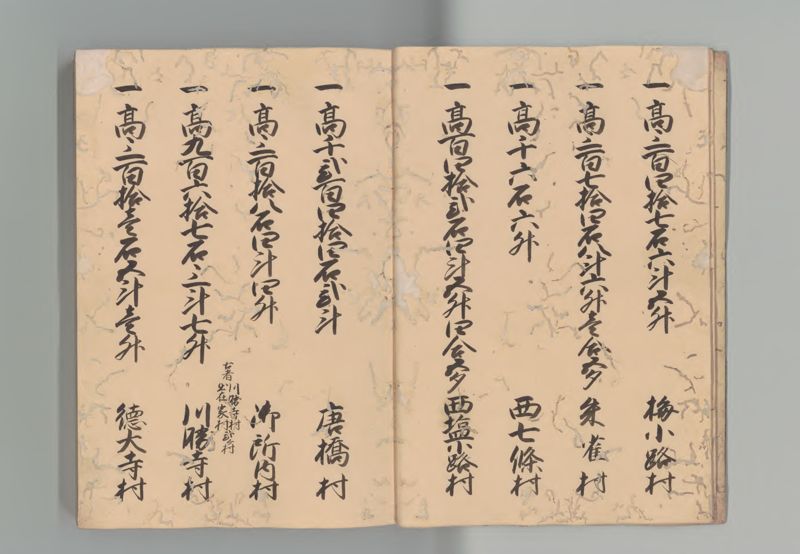 一高三百四拾七石六斗五升 梅小路村
一高三百七拾四石八斗六升壱合五夕 朱雀村
一高千六石六升 西七條村
一高百四拾弐石四斗五升四合五夕 西塩小路村
一高千弐百四拾四石弐斗 唐橋村
一高三百拾八石四斗四升 御所内村
右者川勝寺村
出在家村弐ヶ村
一高九百六拾七石三斗七升 川勝寺村
一高三百拾壱石五斗壱升 徳大寺村